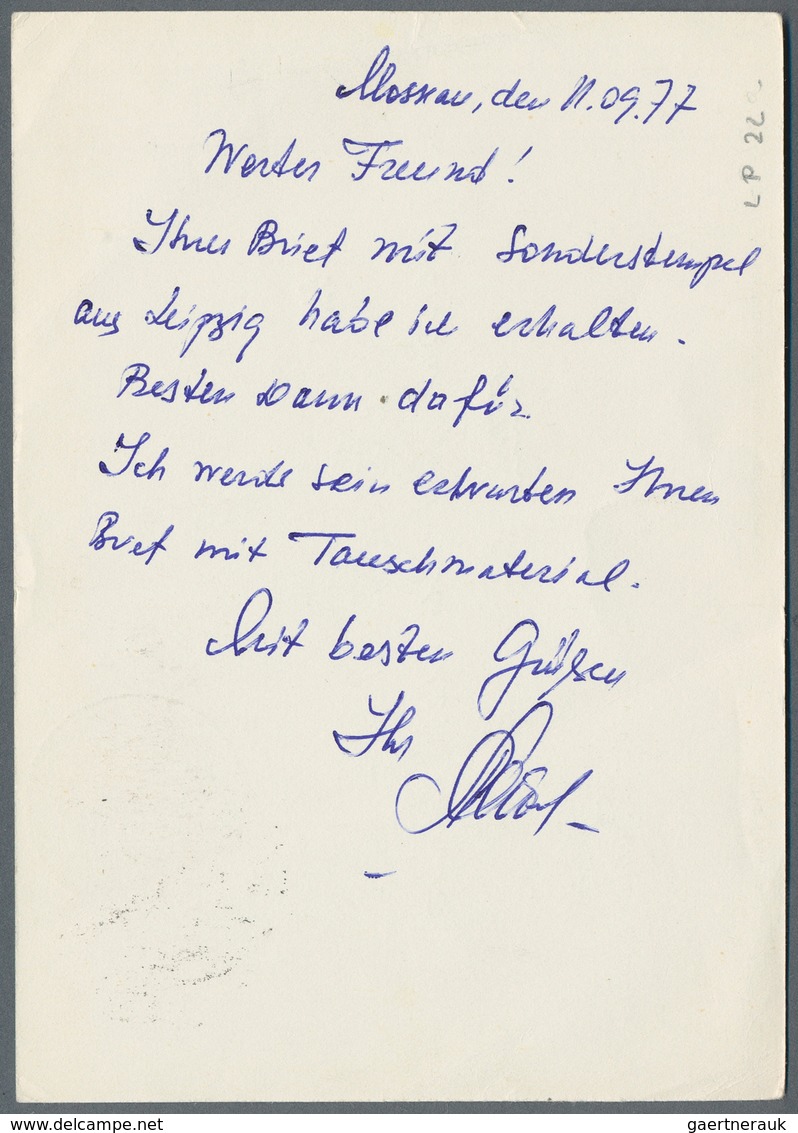 Moskau, den 11.09.77
LP 22
Werter Freund!
Ihren Brief mit Sonderstempel
aus Leipzig habe ich erhalten.
Besten Dann dafür
Ich werde sein erwarten Ihren
Brief mit Tauschmaterial.
Mit besten Grüßen
Ihr
www.delcampe.net
gaertnerauk